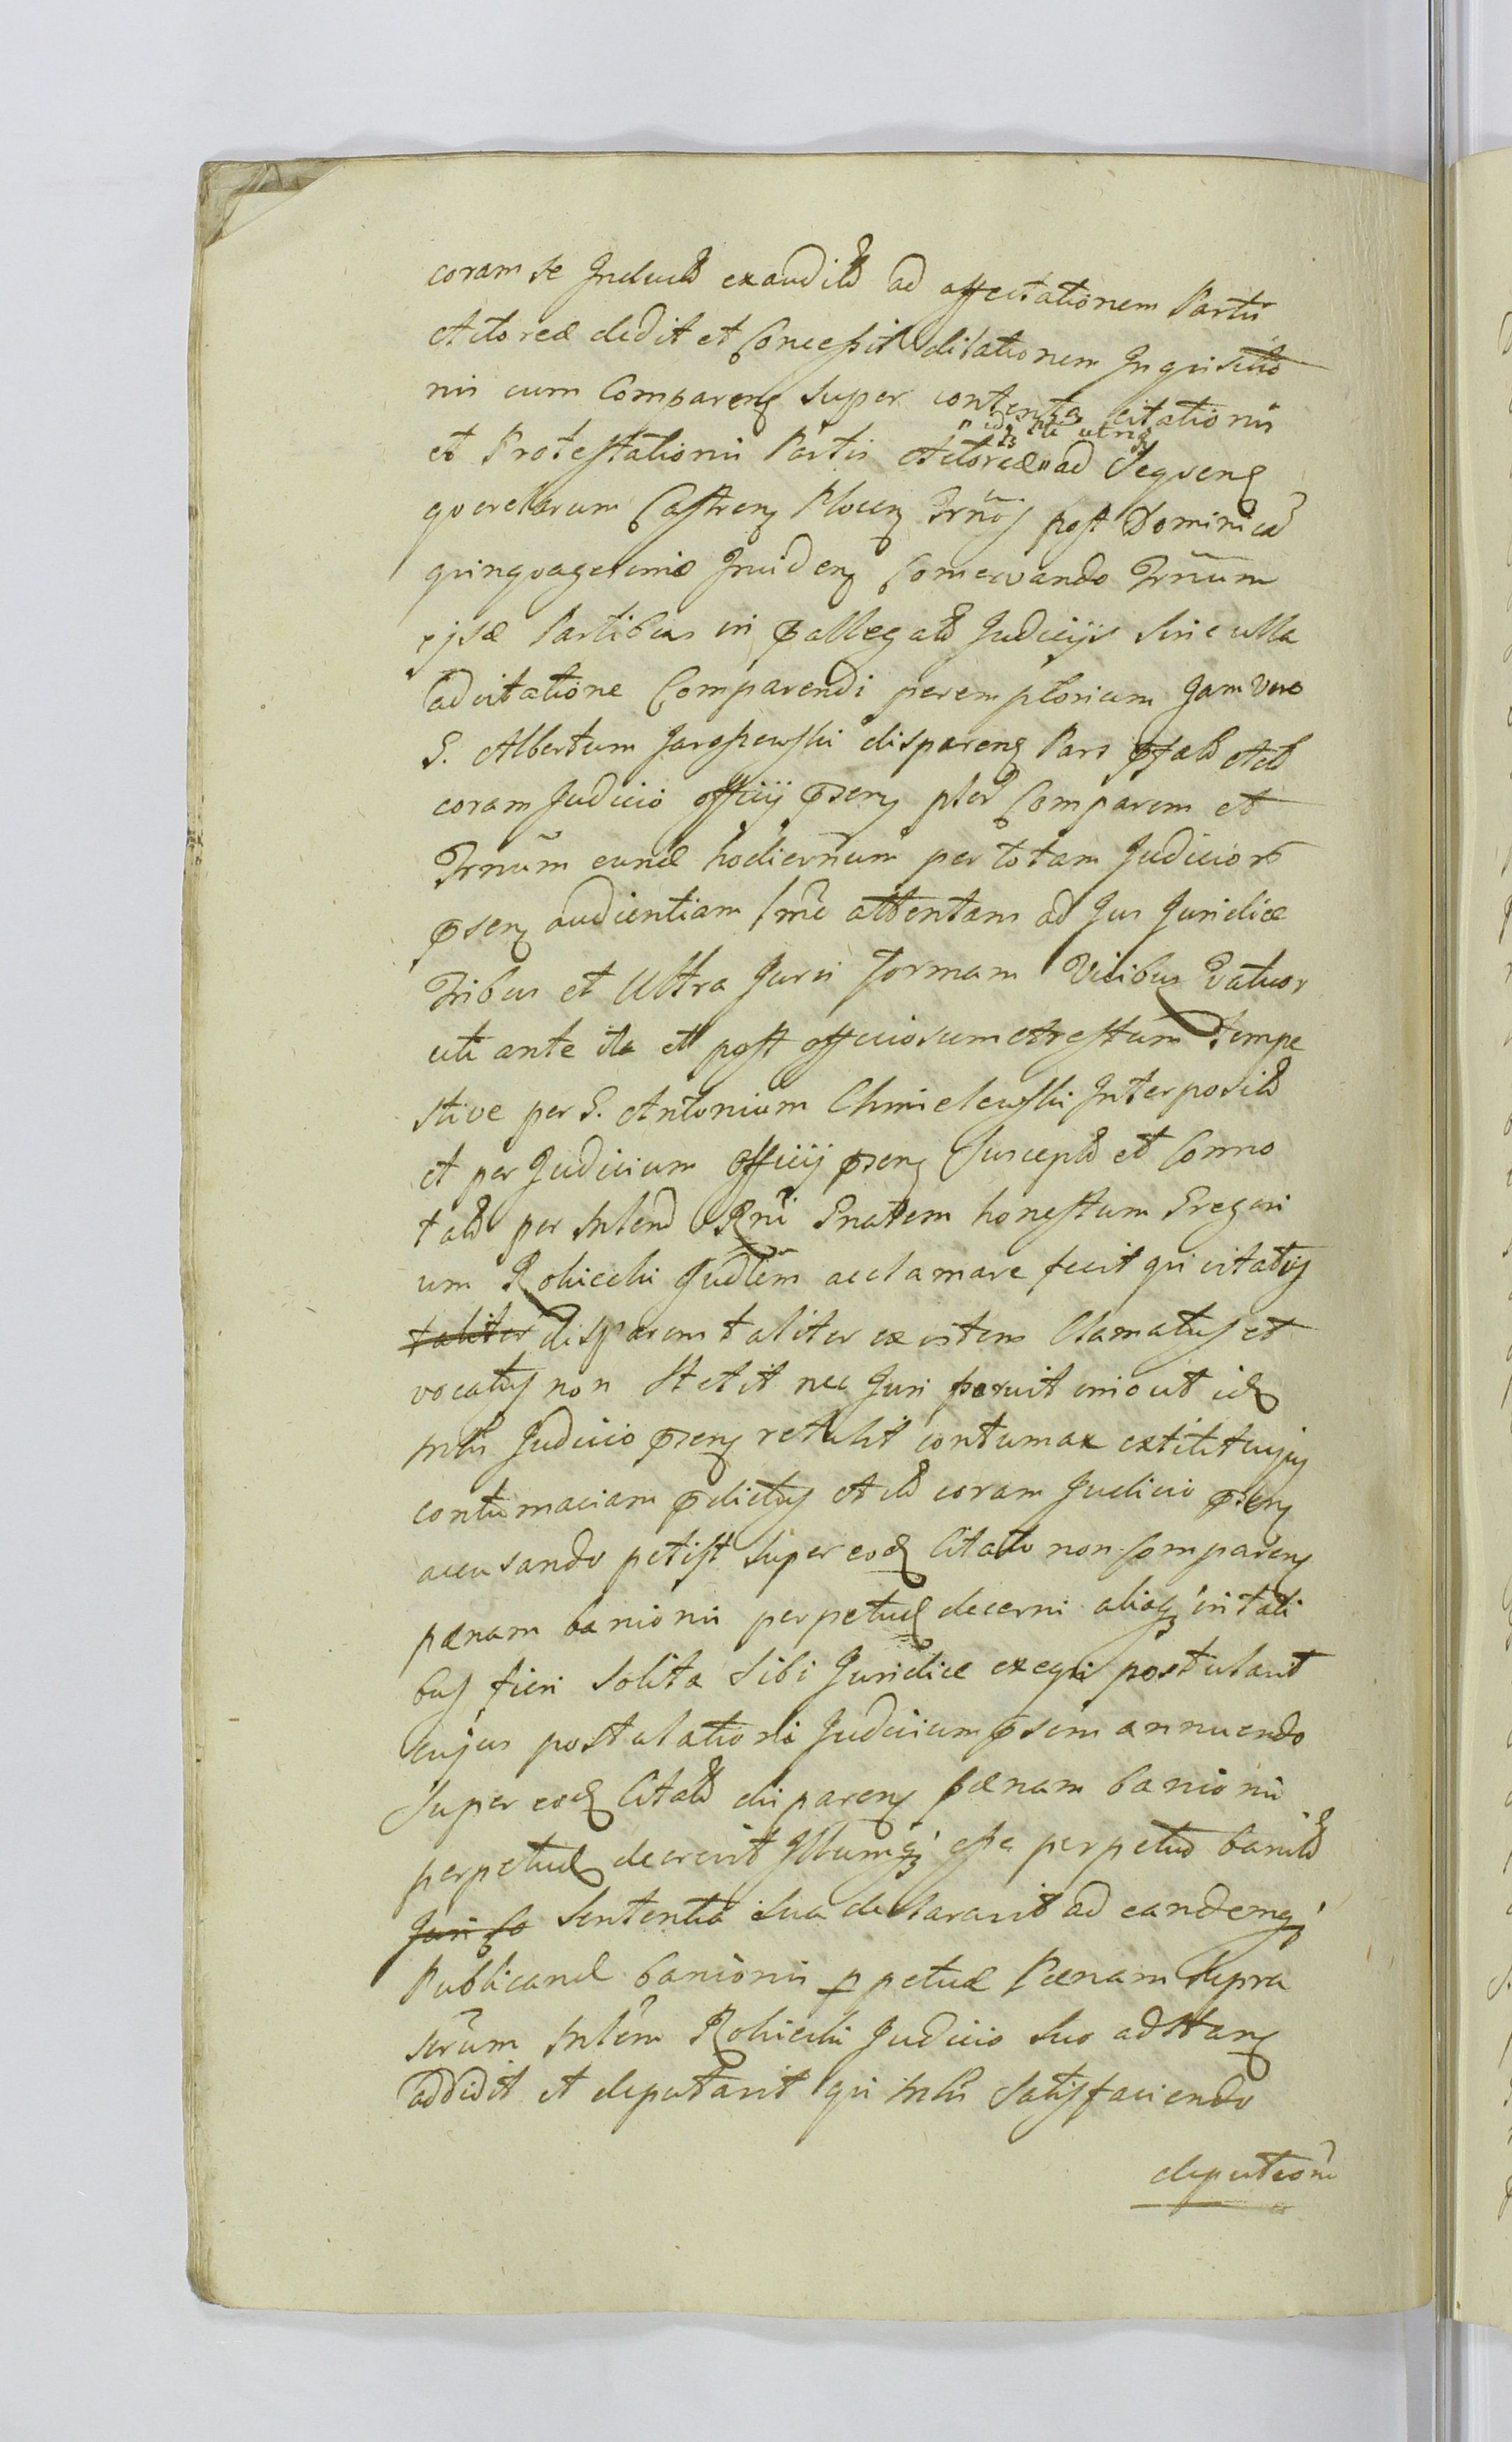 coram se Inductis exauditis ad affectationem Partis
Actoreæ dedit et Concessit dilationem Inquisitio
nis cum Comparen super contenta citationis
idq pti utriq
et Protestationis Partis Actoreæ ad Sequen
querelarum Castren Plocen Trnos post Dominicã
quinquagesimæ Inciden Conservando Trnũm
ijsdē Partibus in pallegatis Judicijs sine ulla
adcitatione Comparendi peremptorium Jam vero
G. Albertum Jaroszewski disparen Pars Act
coram Judicio officij psen pter Comparen et
Trnũm eund hodiernum per totam Judiciorũ
psen audientiam lme attentans ad Jus Juridice
Tribus et Ultra Juris formam Vicibus Quatuor
uti ante ita et post officiosum Arestum tempe
stive per G. Antonium Chmielewski Interposit
et per Judicium Officij psen Suscept et Conno
tat per Mlem Rni Gnãlem honestum Gregori
um Rokicki Judlem acclamare fecit qui citatus
taliter disparens taliter existens Clamatus et
vocatus non Stetit nec Juri paruit imo ut id
Mlis Judicio psen retulit contumax extitit cujus
contumaciam pdictus Act coram Judicio psen
accusando petijt Super eod Citato non Comparen
pænam banionis perpetuæ decerni aliaq in tali
bus fieri solita Sibi Juridice exequi postulavit
cujus postulationi Judicium psem annuendo
Super eod Citato disparen pænam banionis
perpetuæ decrevit Illumq esse perpetuo banit
sententia sua declaravit ad eandemq
Publicand banionis ppetuæ Pænam Supra
scrum Mlem Rokicki Judicio Suo adstan
addidit et deputavit qui Mlis Satisfaciendo
deputeoni